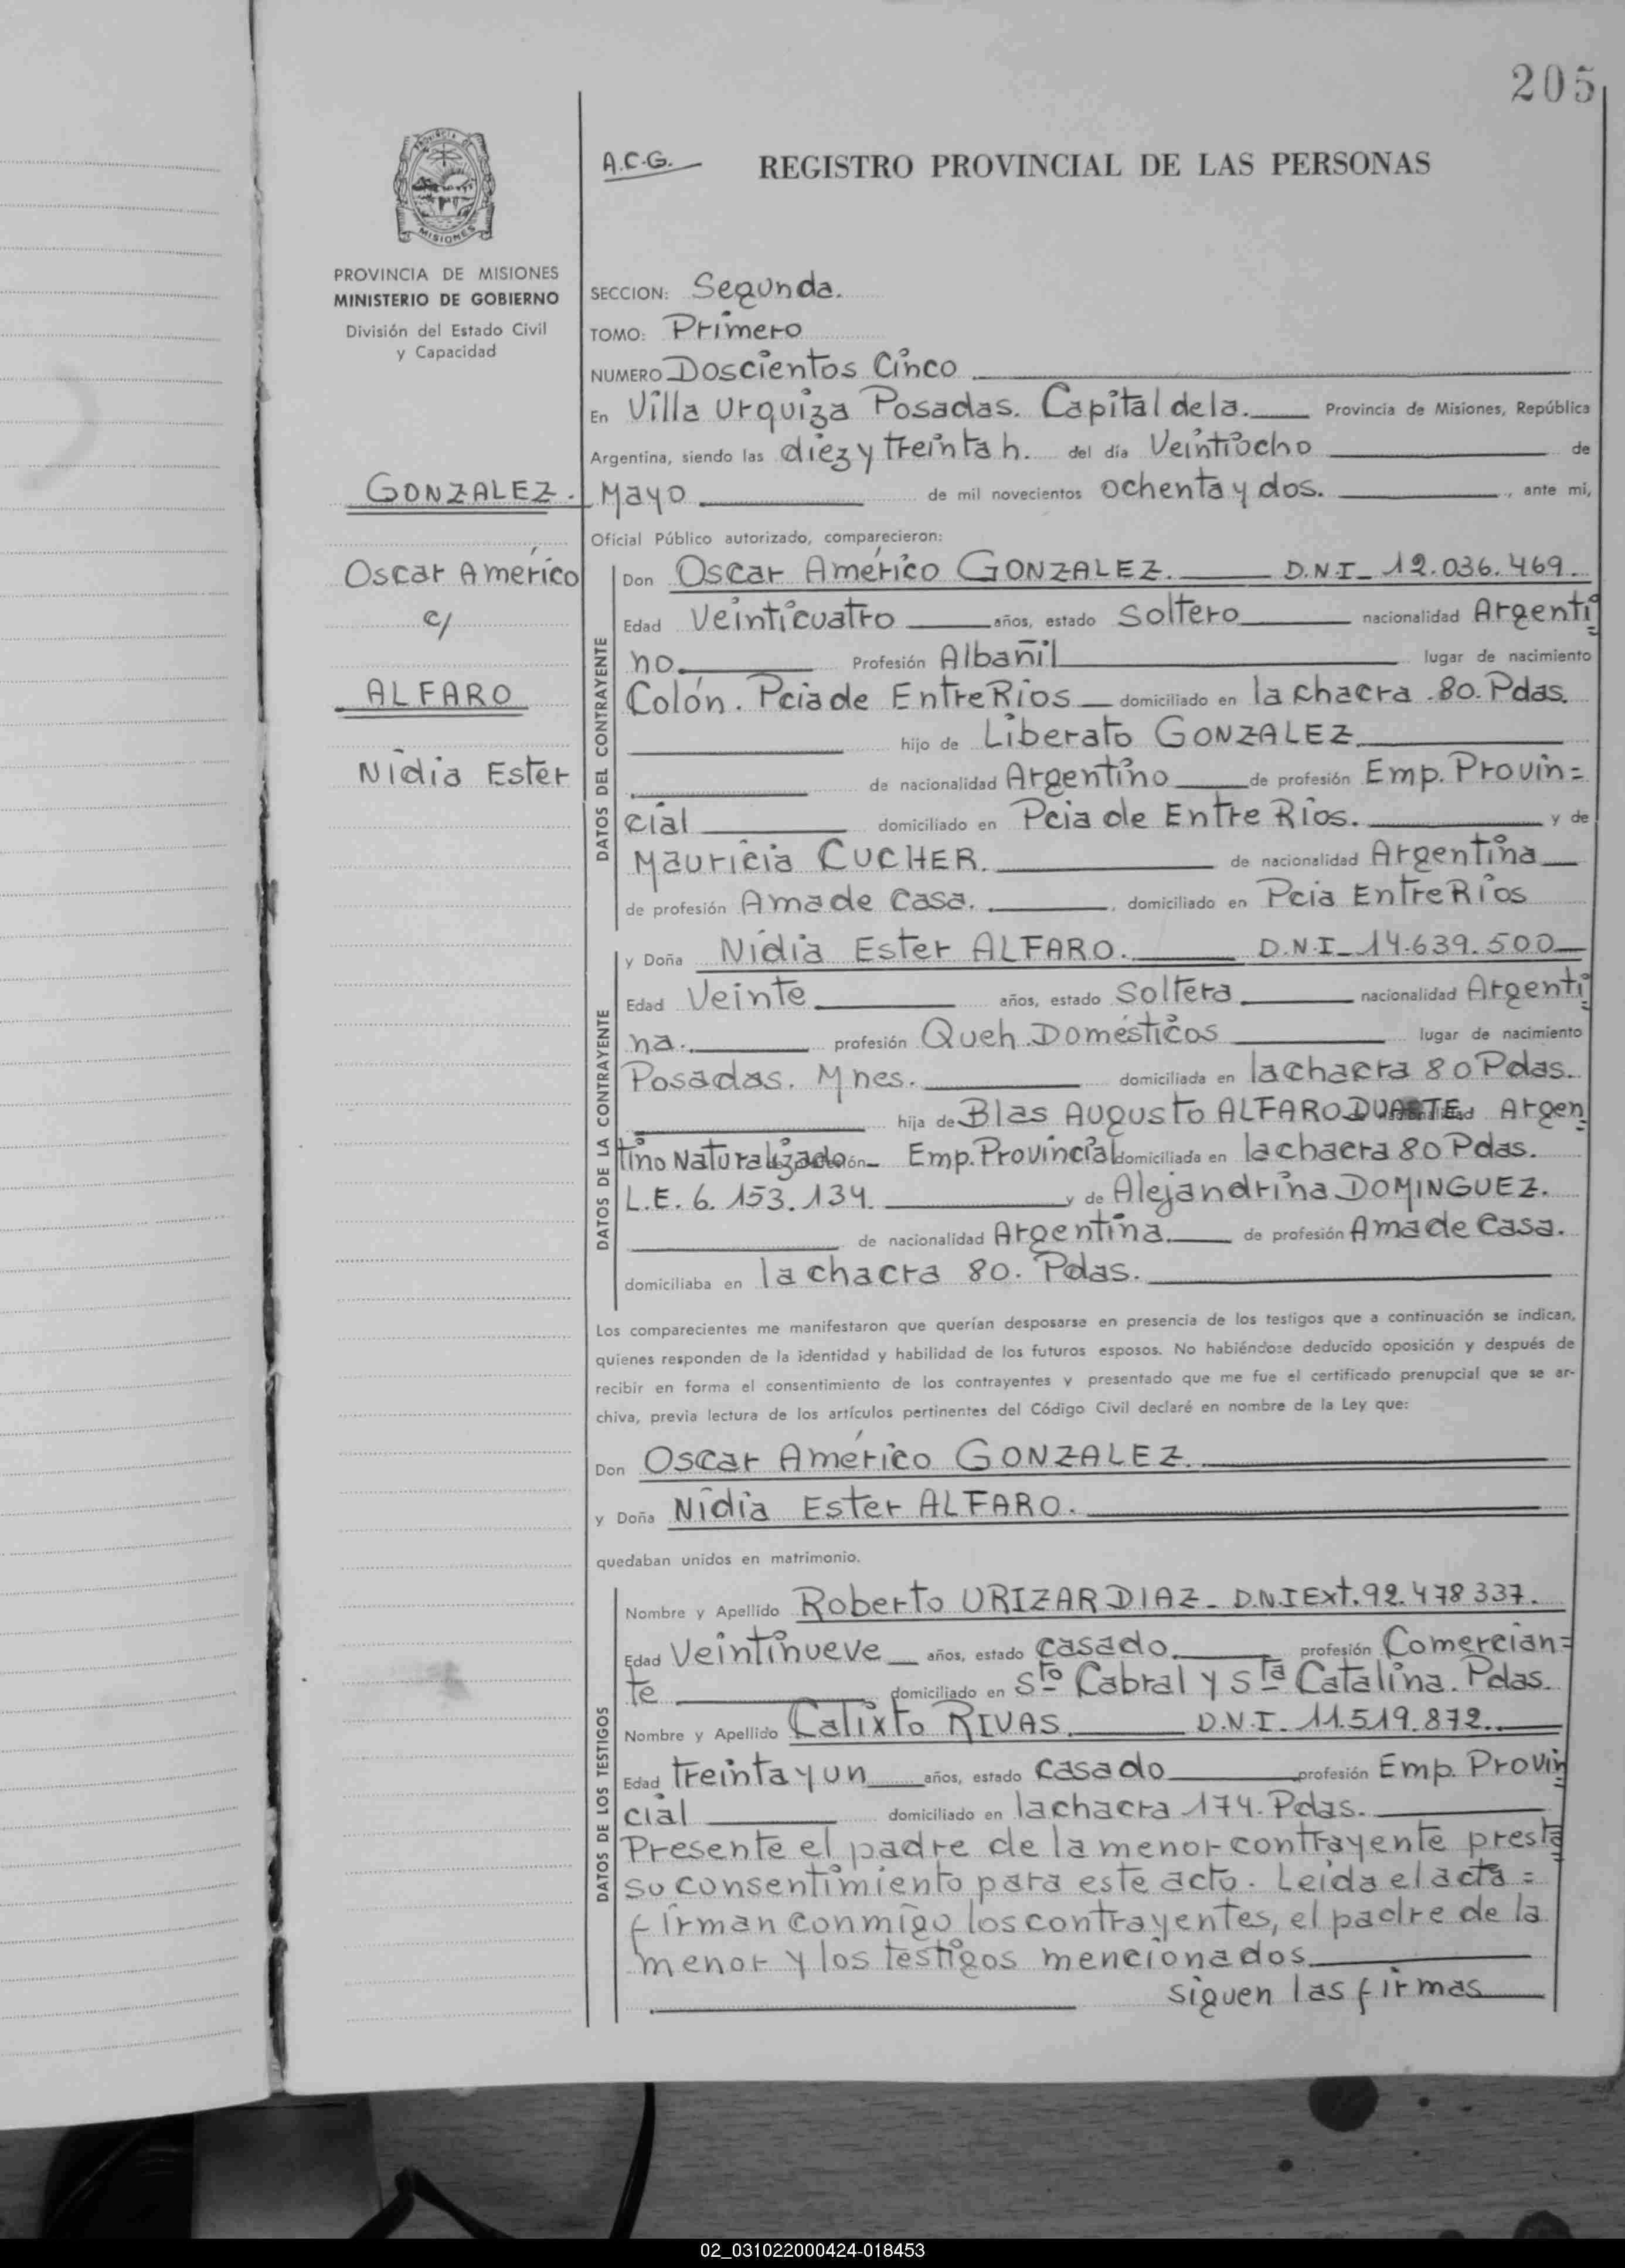 205
A.C.G.
REGISTRO PROVINCIAL DE LAS PERSONAS
MISIONES
PROVINCIA DE MISIONES
MINISTERIO DE GOBIERNO
División del Estado Civil
y Capacidad
SECCION: Segunda.
TOMO: Primero
NUMERO Doscientos Cinco
En Villa Urquiza Posadas. Capital de la. Provincia de Misiones, República
Argentina, siendo las diez y treinta h. del día Veintiocho de
GONZALEZ. Mayo de mil novecientos ochenta y dos. , ante mi,
Oficial Público autorizado, comparecieron:
Oscar Américo
c/
ALFARO
Nidia Ester
DATOS DEL CONTRAYENTE
Don Oscar Américo GONZALEZ. D.N.I_ 12.036.469.
Edad Veinticuatro años, estado soltero nacionalidad Argenti
no. Profesión Albañil lugar de nacimiento
Colón. Pcia de Entre Rios domiciliado en la chacra 80. Pdas.
hijo de Liberato GONZALEZ
de nacionalidad Argentino de profesión Emp. Provin=
cial domiciliado en Pcia de Entre Rios. y de
Mauricia CUCHER. de nacionalidad Argentina
de profesión Ama de Casa. , domiciliado en Pcia Entre Rios
DATOS DE LA CONTRAYENTE
y Doña Nidia Ester ALFARO. D.N.I_ 14.639.500
Edad Veinte años, estado Soltera nacionalidad Argenti
na. profesión Queh. Domésticos lugar de nacimiento
Posadas. Mnes. domiciliada en la chacra 80 Pdas.
hija de Blas Augusto ALFARO DUARTE Argen
tino Naturalizado Emp. Provincial domiciliada en la chacra 80 Pdas.
L.E. 6.153.134. y de Alejandrina DOMINGUEZ.
de nacionalidad Argentina. de profesión Ama de Casa.
domiciliaba en la chacra 80. Pdas.
Los comparecientes me manifestaron que querían desposarse en presencia de los testigos que a continuación se indican,
quienes responden de la identidad y habilidad de los futuros esposos. No habiéndose deducido oposición y después de
recibir en forma el consentimiento de los contrayentes y presentado que me fue el certificado prenupcial que se ar-
chiva, previa lectura de los artículos pertinentes del Código Civil declaré en nombre de la Ley que:
Don Oscar Américo GONZALEZ.
y Doña Nidia Ester ALFARO.
quedaban unidos en matrimonio.
DATOS DE LOS TESTIGOS
Nombre y Apellido Roberto URIZAR DIAZ_ D.N.I Ext. 92.478 337.
Edad Veintinueve años, estado casado. profesión Comercian=
te domiciliado en Sto Cabral y Sta Catalina. Pdas.
Nombre y Apellido Calixto RIVAS. D.N.I_ 11.519.872.
Edad treinta y un años, estado casado profesión Emp. Provin
cial domiciliado en la chacra 174. Pdas.
Presente el padre de la menor contrayente presta
su consentimiento para este acto. Leida el acta =
firman conmigo los contrayentes, el padre de la
menor y los testigos mencionados.
siguen las firmas
02_031022000424-018453